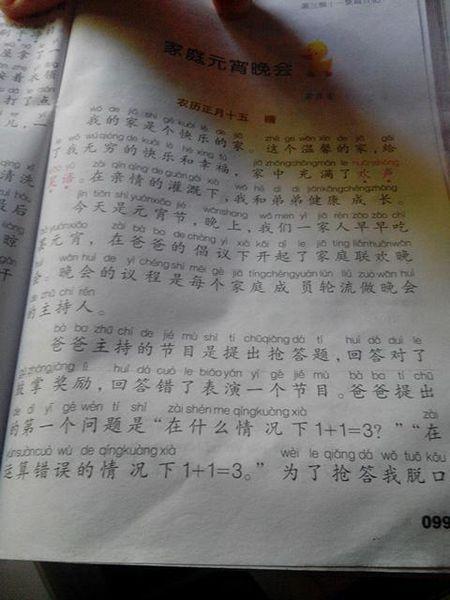 第三辑
家庭元宵晚会
农历正月十五 晴
wǒ de jiā shì gè kuài lè de jiā zhè gè wēn xīn de jiā gěi
我的家是个快乐的家。这个温馨的家,给
le wǒ wú qióng de kuài lè hé xìng fú jiā zhōng chōng mǎn le huān shēng
了我无穷的快乐和幸福,家中充满了欢声
xiào yǔ zài qīn qíng de guàn gài xià wǒ hé dì di jiàn kāng chéng zhǎng
笑语。在亲情的灌溉下,我和弟弟健康成长。
jīn tiān shì yuán xiāo jié wǎn shang wǒ men yì jiā rén zǎo zǎo chī
今天是元宵节,晚上,我们一家人早早吃
yuán xiāo zài bà ba de chàng yì xià kāi qǐ le jiā tíng lián huān wǎn
元宵,在爸爸的倡议下开起了家庭联欢晚
huì wǎn huì de yì chéng shì měi gè jiā tíng chéng yuán lún liú zuò wǎn huì
会。晚会的议程是每个家庭成员轮流做晚会
de zhǔ chí rén
的主持人。
bà ba zhǔ chí de jié mù shì tí chū qiǎng dá tí huí dá duì le
爸爸主持的节目是提出抢答题,回答对了
gǔ zhǎng jiǎng lì huí dá cuò le biǎo yǎn yí gè jié mù bà ba tí chū
鼓掌奖励,回答错了表演一个节目。爸爸提出
de dì yī gè wèn tí shì zài shén me qíng kuàng xià zài
的第一个问题是“在什么情况下1+1=3?”“在
yùn suàn cuò wù de qíng kuàng xià wèi le qiǎng dá wǒ tuō kǒu
运算错误的情况下1+1=3。”为了抢答我脱口
099